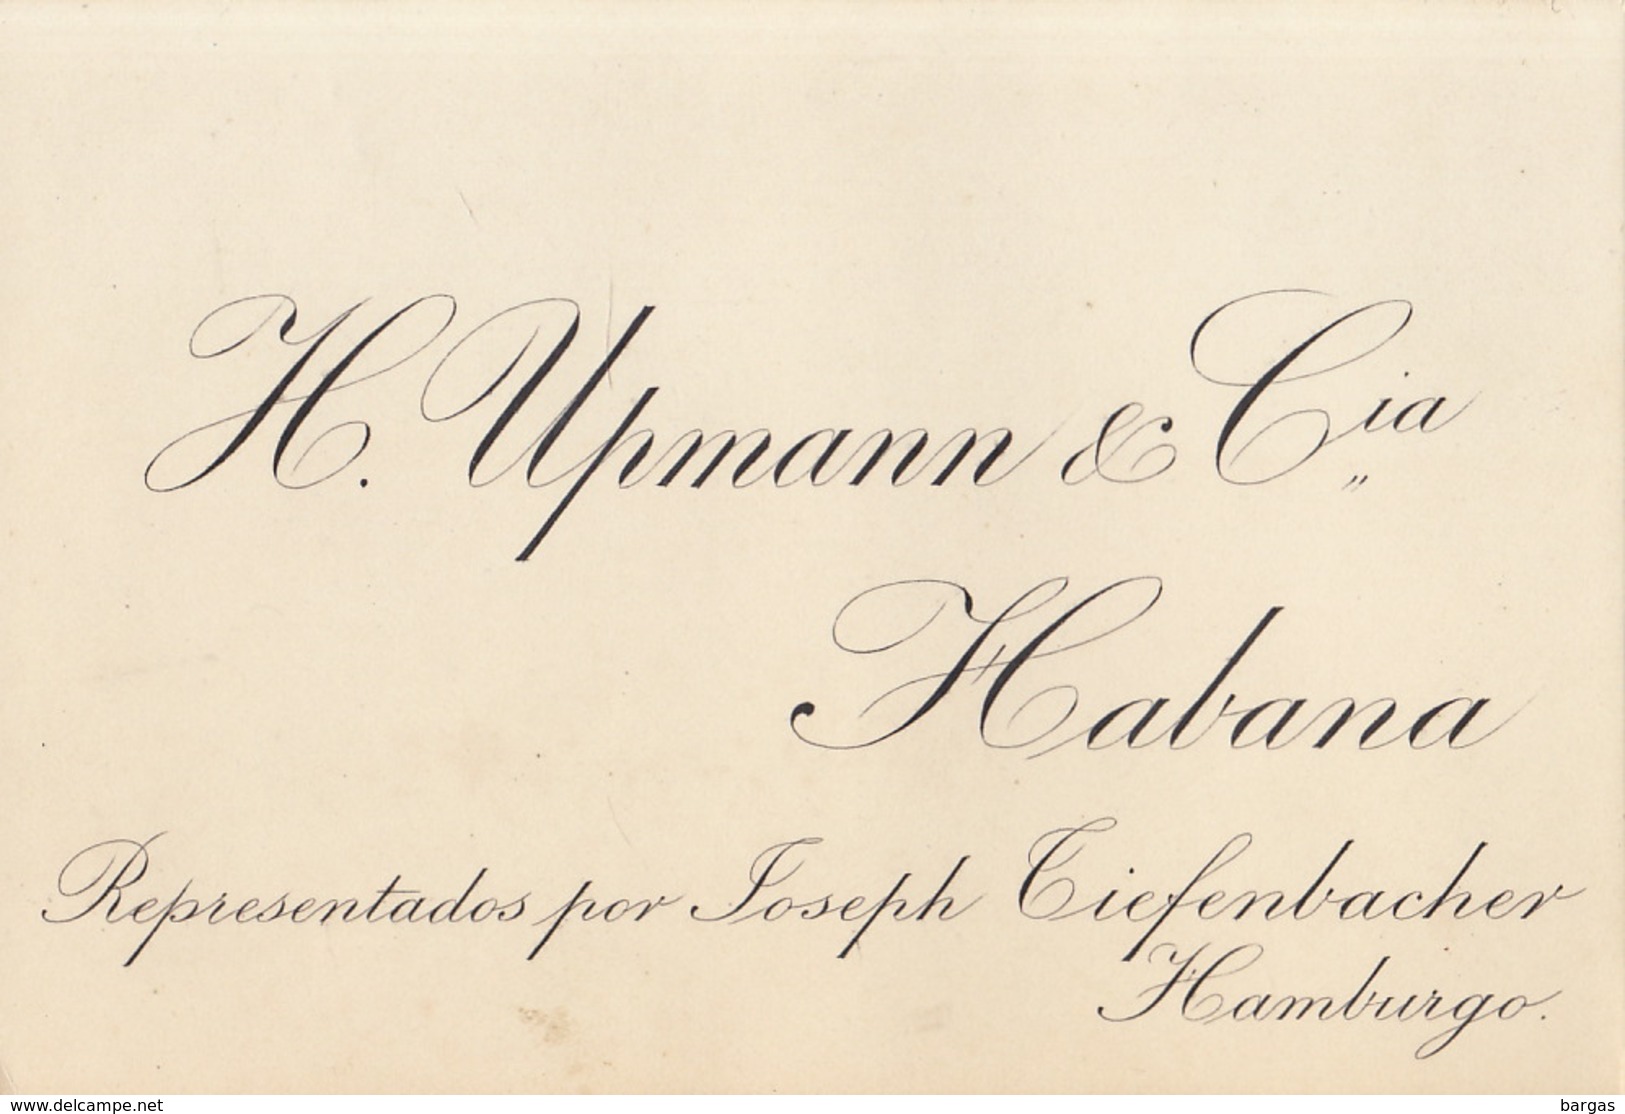 H. Upmann & Cia
Habana
Representados por Joseph Tiefenbacher
Hamburgo.
www.delcampe.net
bargas